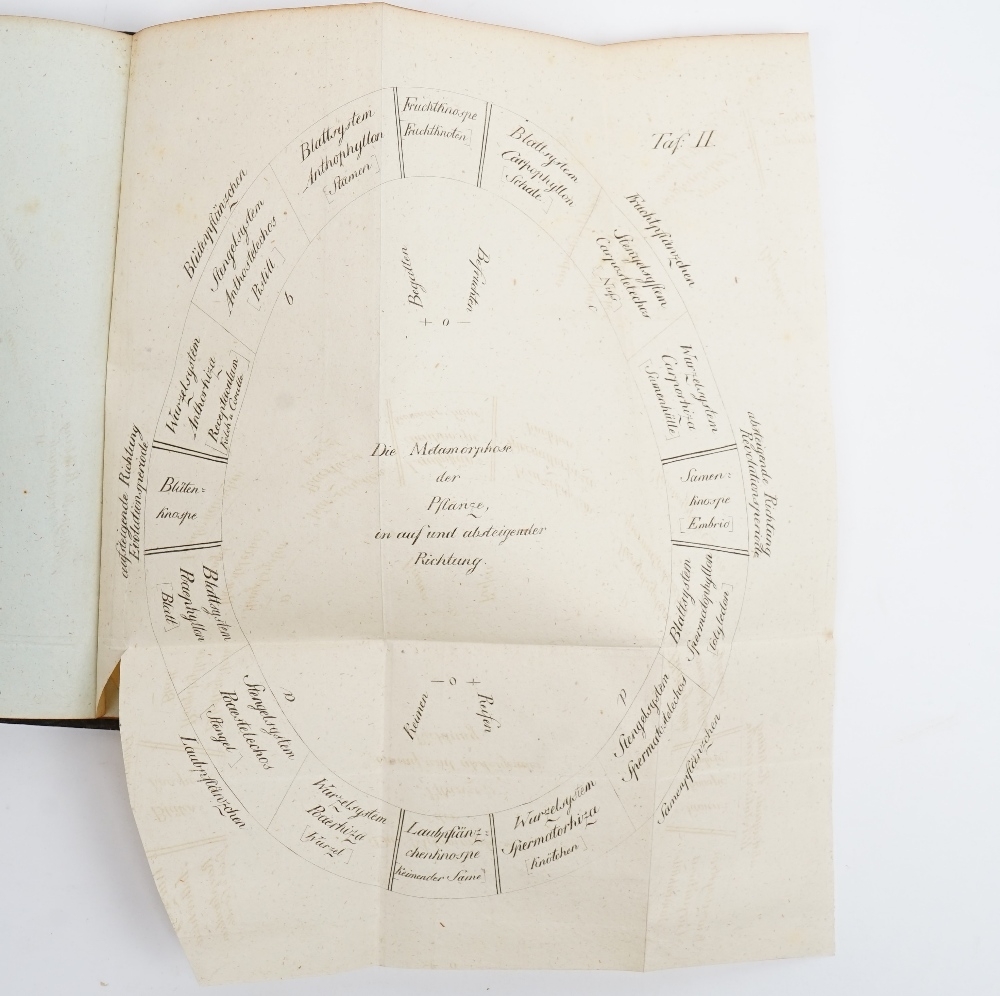 Taf: II.
Fruchtknospe
Fruchtknoten
Blattsystem
Carpophyllon
Schale
Fruchtpflänzchen
Stengelsystem
Carpostelechos
Nuß
c
Wurzelsystem
Carporhiza
Samenhülle
absteigende Richtung
Revolutionsperiode
Samen=
knospe
Embrio
Blattsystem
Spermatophyllon
Cotyledon
Samenpflänzchen
Stengelsystem
Spermatostelechos
d
Wurzelsystem
Spermatorhiza
Knötchen
Laubpflänz=
chenknospe
Keimender Same
Wurzelsystem
Poaerhiza
Wurzel
Laubpflänzchen
Stengelsystem
Poaestelechos
Stengel
a
Blattsystem
Blatt
Blüten=
knospe
aufsteigende Richtung
Evolutionsperiode
Wurzelsystem
Anthorhiza
Receptaculum
Kelch u. Corolle
Blütenpflänzchen
Stengelsystem
Anthostelechos
Pistill
b
Blattsystem
Anthophyllon
Stamen
Begatten
Befruchten
+ o —
Die Metamorphose
der
Pflanze,
in auf und absteigender
Richtung.
— o +
Keimen
Reifen